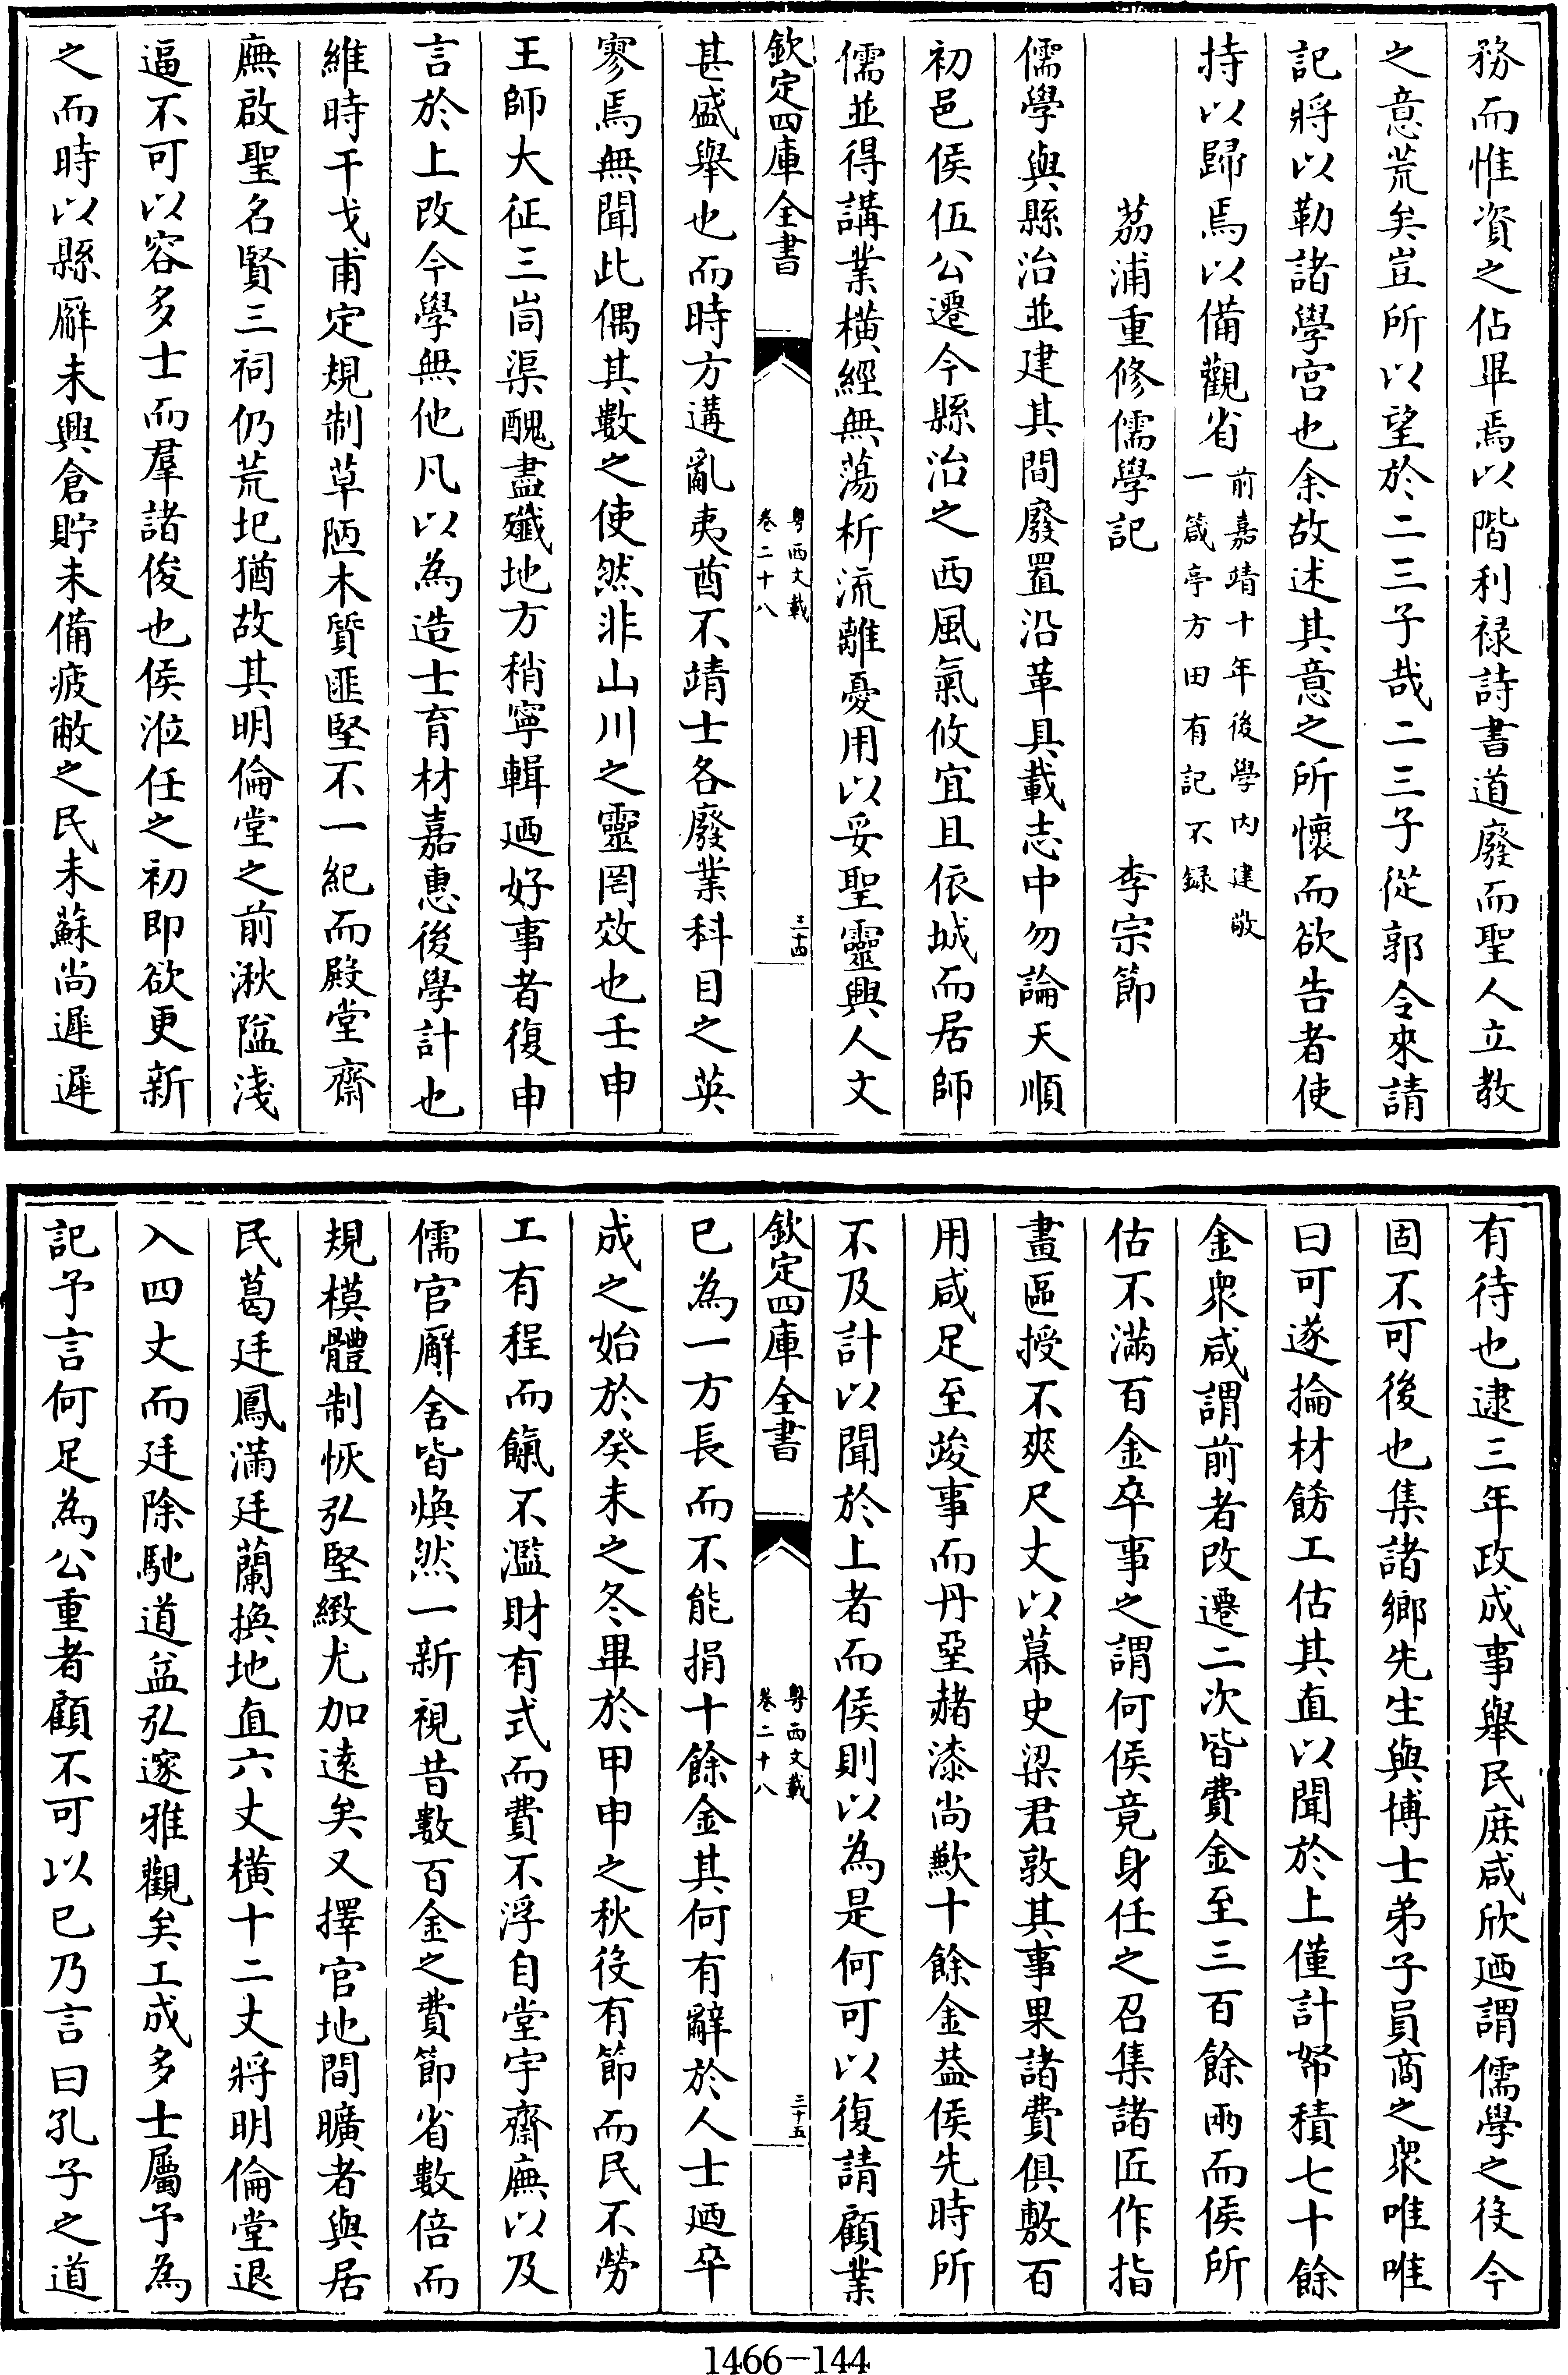 務而惟資之佔畢焉以階利禄詩書道廢而聖人立教
之意荒矣豈所以望於二三子哉二三子從郭令來請
記將以勒諸學宫也余故述其意之所懷而欲告者使
持以歸焉以備觀省前嘉靖十年後學内建敬
一箴亭方田有記不録
荔浦重修儒學記　李宗節
儒學與縣治並建其間廢置沿革具載志中勿論天順
初邑侯伍公遷今縣治之西風氣攸宜且依城而居師
儒並得講業橫經無蕩析流離憂用以妥聖靈興人文
欽定四庫全書
粤西文載
卷二十八
三十四
甚盛舉也而時方遘亂夷酋不靖士各廢業科目之英
寥焉無聞此偶其數之使然非山川之靈罔效也壬申
王師大征三峝渠醜盡殲地方稍寧輯廼好事者復申
言於上改今學無他凡以為造士育材嘉惠後學計也
維時干戈甫定規制草陋木質匪堅不一紀而殿堂齋
廡啟聖名賢三祠仍荒圮猶故其明倫堂之前湫隘淺
逼不可以容多士而羣諸俊也侯涖任之初即欲更新
之而時以縣廨未興倉貯未備疲敝之民未蘇尚遲遲
有待也逮三年政成事舉民庶咸欣廼謂儒學之役今
固不可後也集諸鄉先生與博士弟子員商之衆唯唯
曰可遂掄材餝工估其直以聞於上僅計帑積七十餘
金衆咸謂前者改遷二次皆費金至三百餘兩而侯所
估不滿百金卒事之謂何侯竟身任之召集諸匠作指
畫區授不爽尺丈以幕史梁君敦其事果諸費俱敷百
用咸足至竣事而丹堊赭漆尚歉十餘金葢侯先時所
不及計以聞於上者而侯則以為是何可以復請顧業
欽定四庫全書
粤西文載
卷二十八
三十五
已為一方長而不能捐十餘金其何有辭於人士廼卒
成之始於癸未之冬畢於甲申之秋役有節而民不勞
工有程而餼不濫財有式而費不浮自堂宇齋廡以及
儒官廨舍皆煥然一新視昔數百金之費節省數倍而
規模體制恢弘堅緻尤加遠矣又擇官地間曠者與居
民葛廷鳳滿廷蘭換地直六丈橫十二丈將明倫堂退
入四丈而廷除馳道益弘邃雅觀矣工成多士屬予為
記予言何足為公重者顧不可以已乃言曰孔子之道
1466-144